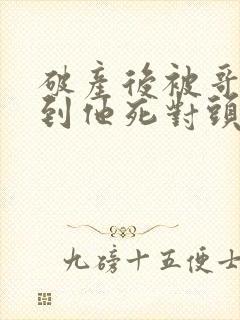 破產後被哥
到他死對頭
九磅十五便士